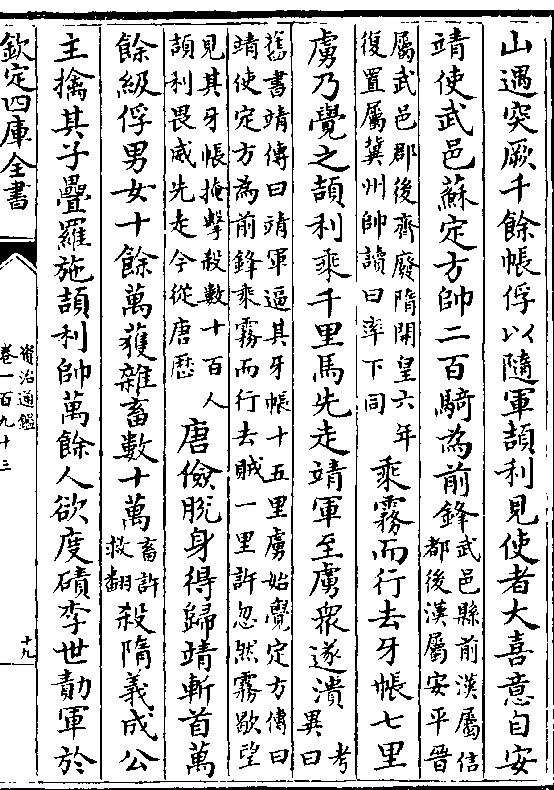 山遇突厥千餘帳俘以隨軍頡利見使者大喜意自安
靖使武邑蘇定方帥二百騎為前鋒
武邑縣前漢屬信
都後漢屬安平晉
屬武邑郡後齊廢隋開皇六年
復置屬冀州帥讀曰率下同
乘霧而行去牙帳七里
虜乃覺之頡利乘千里馬先走靖軍至虜衆遂潰
考
異曰
舊書靖傳曰靖軍逼其牙帳十五里虜始覺定方傳曰
靖使定方為前鋒乘霧而行去賊一里許忽然霧歇望
見其牙帳掩擊殺數十百人
頡利畏威先走今從唐歷
唐儉脫身得歸靖斬首萬
餘級俘男女十餘萬獲雜畜數十萬
畜許
救翻
殺隋義成公
主擒其子疊羅施頡利帥萬餘人欲度磧李世勣軍於
欽定四庫全書
資治通鑑
卷一百九十三
十九